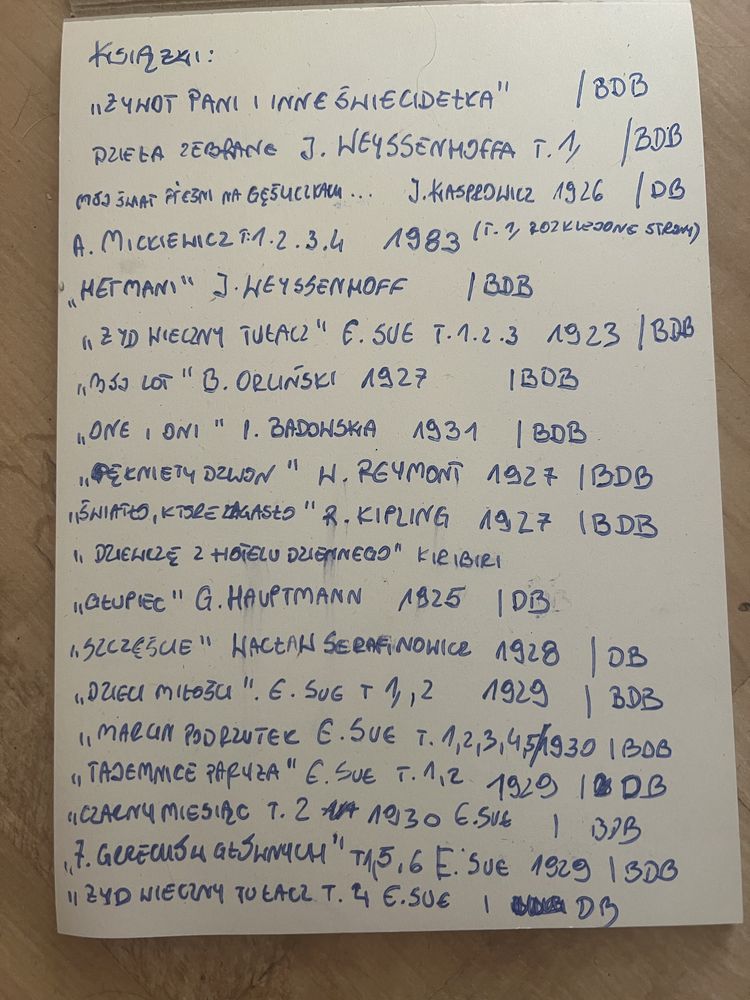 KSIĄŻKI:
„ŻYWOT PANI I INNE ŚWIECIDEŁKA" | BDB
DZIEŁA ZEBRANE J. WEYSSENHOFFA T. 1, | BDB
MÓJ ŚWIAT PIEŚNI NA GĘŚLICZKACH... J. KASPROWICZ 1926 | DB
A. MICKIEWICZ T.1.2.3.4 1983 (T. 1, ROZKLEJONE STRONY)
„HETMANI" J. WEYSSENHOFF | BDB
„ŻYD WIECZNY TUŁACZ" E. SUE T.1.2.3 1923 | BDB
„MÓJ LOT" B. ORLIŃSKI 1927 | BDB
„ONE I ONI" I. BADOWSKA 1931 | BDB
„PĘKNIĘTY DZWON" W. REYMONT 1927 | BDB
„ŚWIATŁO, KTÓRE ZAGASŁO" R. KIPLING 1927 | BDB
„DZIEWCZĘ Z HOTELU DZIENNEGO" KIRIBIRI
„GŁUPIEC" G. HAUPTMANN 1925 | DB
„SZCZĘŚCIE" WACŁAW SERAFINOWICZ 1928 | DB
„DZIECI MIŁOŚCI". E. SUE T 1,,2 1929 | BDB
„MARCIN PODRZUTEK E. SUE T. 1,2,3,4,5/1930 | BDB
„TAJEMNICE PARYŻA" E. SUE T. 1,2 1929 | DB
„CZARNY MIESIĄC T. 2 1930 E. SUE | BDB
„7. GRZECHÓW GŁÓWNYCH" T1,5,6 E. SUE 1929 | BDB
„ŻYD WIECZNY TUŁACZ T. 4 E. SUE | DB